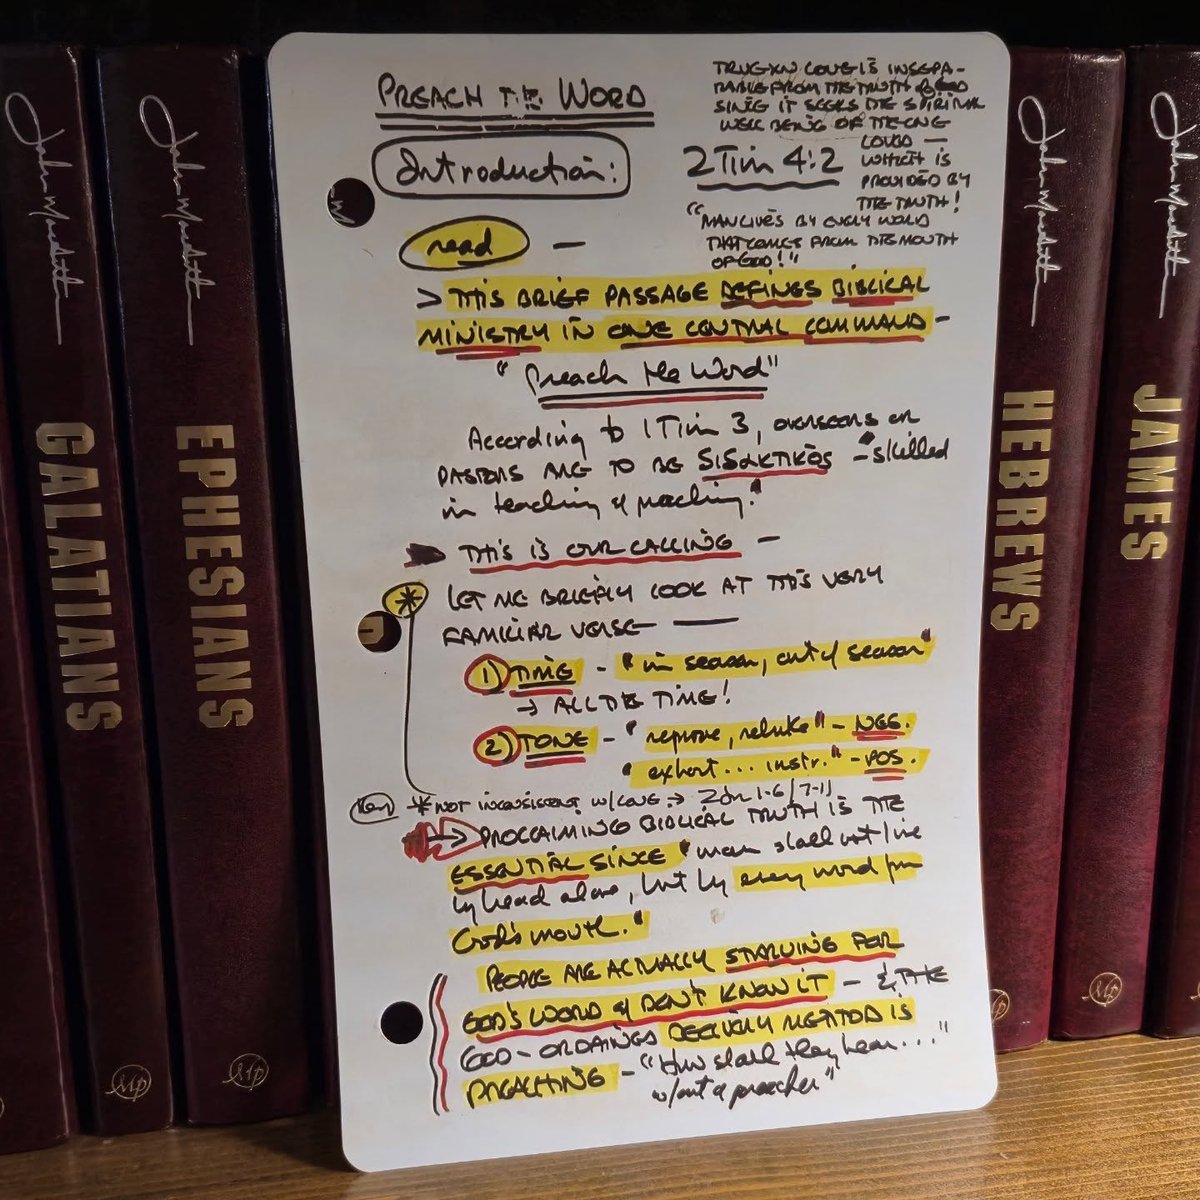 PREACH THE WORD
Introduction:
2 Tim 4:2
TRUE XN LOVE IS INSEPA-
RABLE FROM THE TRUTH OF GOD
SINCE IT SEEKS THE SPIRITUAL
WELL BEING OF THE ONE
LOVED —
WHICH IS
PROVIDED BY
THE TRUTH!
"MAN LIVES BY EVERY WORD
THAT COMES FROM THE MOUTH
OF GOD!"
read —
> THIS BRIEF PASSAGE DEFINES BIBLICAL
MINISTRY IN ONE CENTRAL COMMAND —
"Preach the Word"
According to 1 Tim 3, OVERSEERS OR
PASTORS ARE TO BE —"skilled
in teaching & preaching."
THIS IS OUR CALLING —
* LET ME BRIEFLY LOOK AT THIS VERY
FAMILIAR VERSE —
1) TIME - "in season, out of season"
→ ALL THE TIME!
2) TONE - "reprove, rebuke" - NEG.
"exhort... instr." - POS.
Key * NOT INCONSISTENT W/LOVE → 2 Jn 1-6/7-11
→ PROCLAIMING BIBLICAL TRUTH IS THE
ESSENTIAL SINCE "man shall not live
by bread alone, but by every word from
God's mouth."
PEOPLE ARE ACTUALLY STARVING FOR
GOD'S WORD & DON'T KNOW IT — & THE
GOD-ORDAINED DELIVERY METHOD IS
PREACHING - "How shall they hear...
w/out a preacher"
John MacArthur
GALATIANS
John MacArthur
EPHESIANS
John MacArthur
HEBREWS
John MacArthur
JAMES
MP
MP
MP